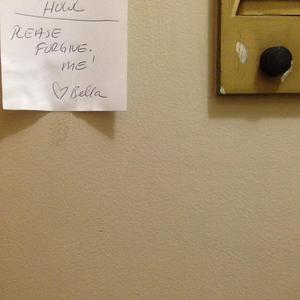 PLEASE
FORGIVE.
ME!
♡ Bella